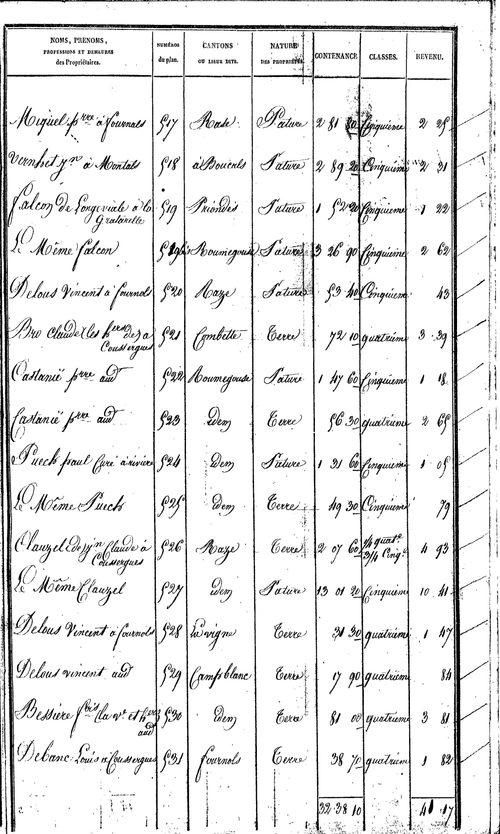 NOMS, PRENOMS, PROFESSIONS ET DEMEURES des Propriétaires. NUMÉROS du plan. CANTONS OU LIEUX DITS. NATURE DES PROPRIÉTÉS CONTENANCE CLASSES. REVENU.
Miquel prre à fournols 517 Rase Pature 2 81 80 Cinquieme 2 25
Vernhet jne à Montals 518 à Bouerls Pature 2 89 20 Cinquieme 2 31
falcon de Longeviale à la Gratarelle 519 Priondes Pature 1 52 20 Cinquieme 1 22
Le Même falcon 519 bis Roumegouse Pature 3 26 90 Cinquieme 2 62
Delous Vincent à fournols 520 Raze Pature 53 40 Cinquieme 43
Bro Claude & les hers de, à Coussergues 521 Combette Terre 72 10 quatrieme 3 39
Castanié prre aud 522 Roumegouse Pature 1 47 60 Cinquieme 1 18
Castanié prre aud 523 idem Terre 56 30 quatrieme 2 65
Puech paul Curé à rivière 524 idem Pature 1 31 60 Cinquieme 1 05
Le Même Puech 525 idem Terre 49 30 Cinquieme 79
Clauzel jne Claude à Coussergues 526 Raze Terre 2 07 60 1/4 quat.e 3/4 Cinq.e 4 93
Le Même Clauzel 527 idem Pature 13 01 20 Cinquieme 10 41
Delous Vincent à fournols 528 La vigne Terre 31 30 quatrieme 1 47
Delous vincent aud 529 Camp blanc Terre 17 90 quatrieme 84
Bessiere fois la ve et hers aud 530 idem Terre 81 00 quatrieme 3 81
Debanc Louis à Coussergues 531 fournols Terre 38 70 quatrieme 1 82
32 38 10 41 17